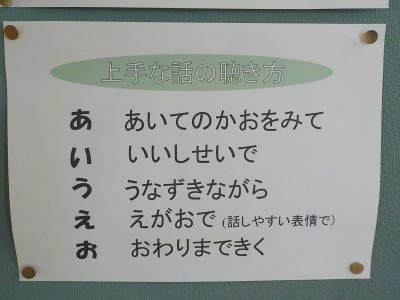 上手な話の聴き方
あ あいてのかおをみて
い いいしせいで
う うなずきながら
え えがおで (話しやすい表情で)
お おわりまできく